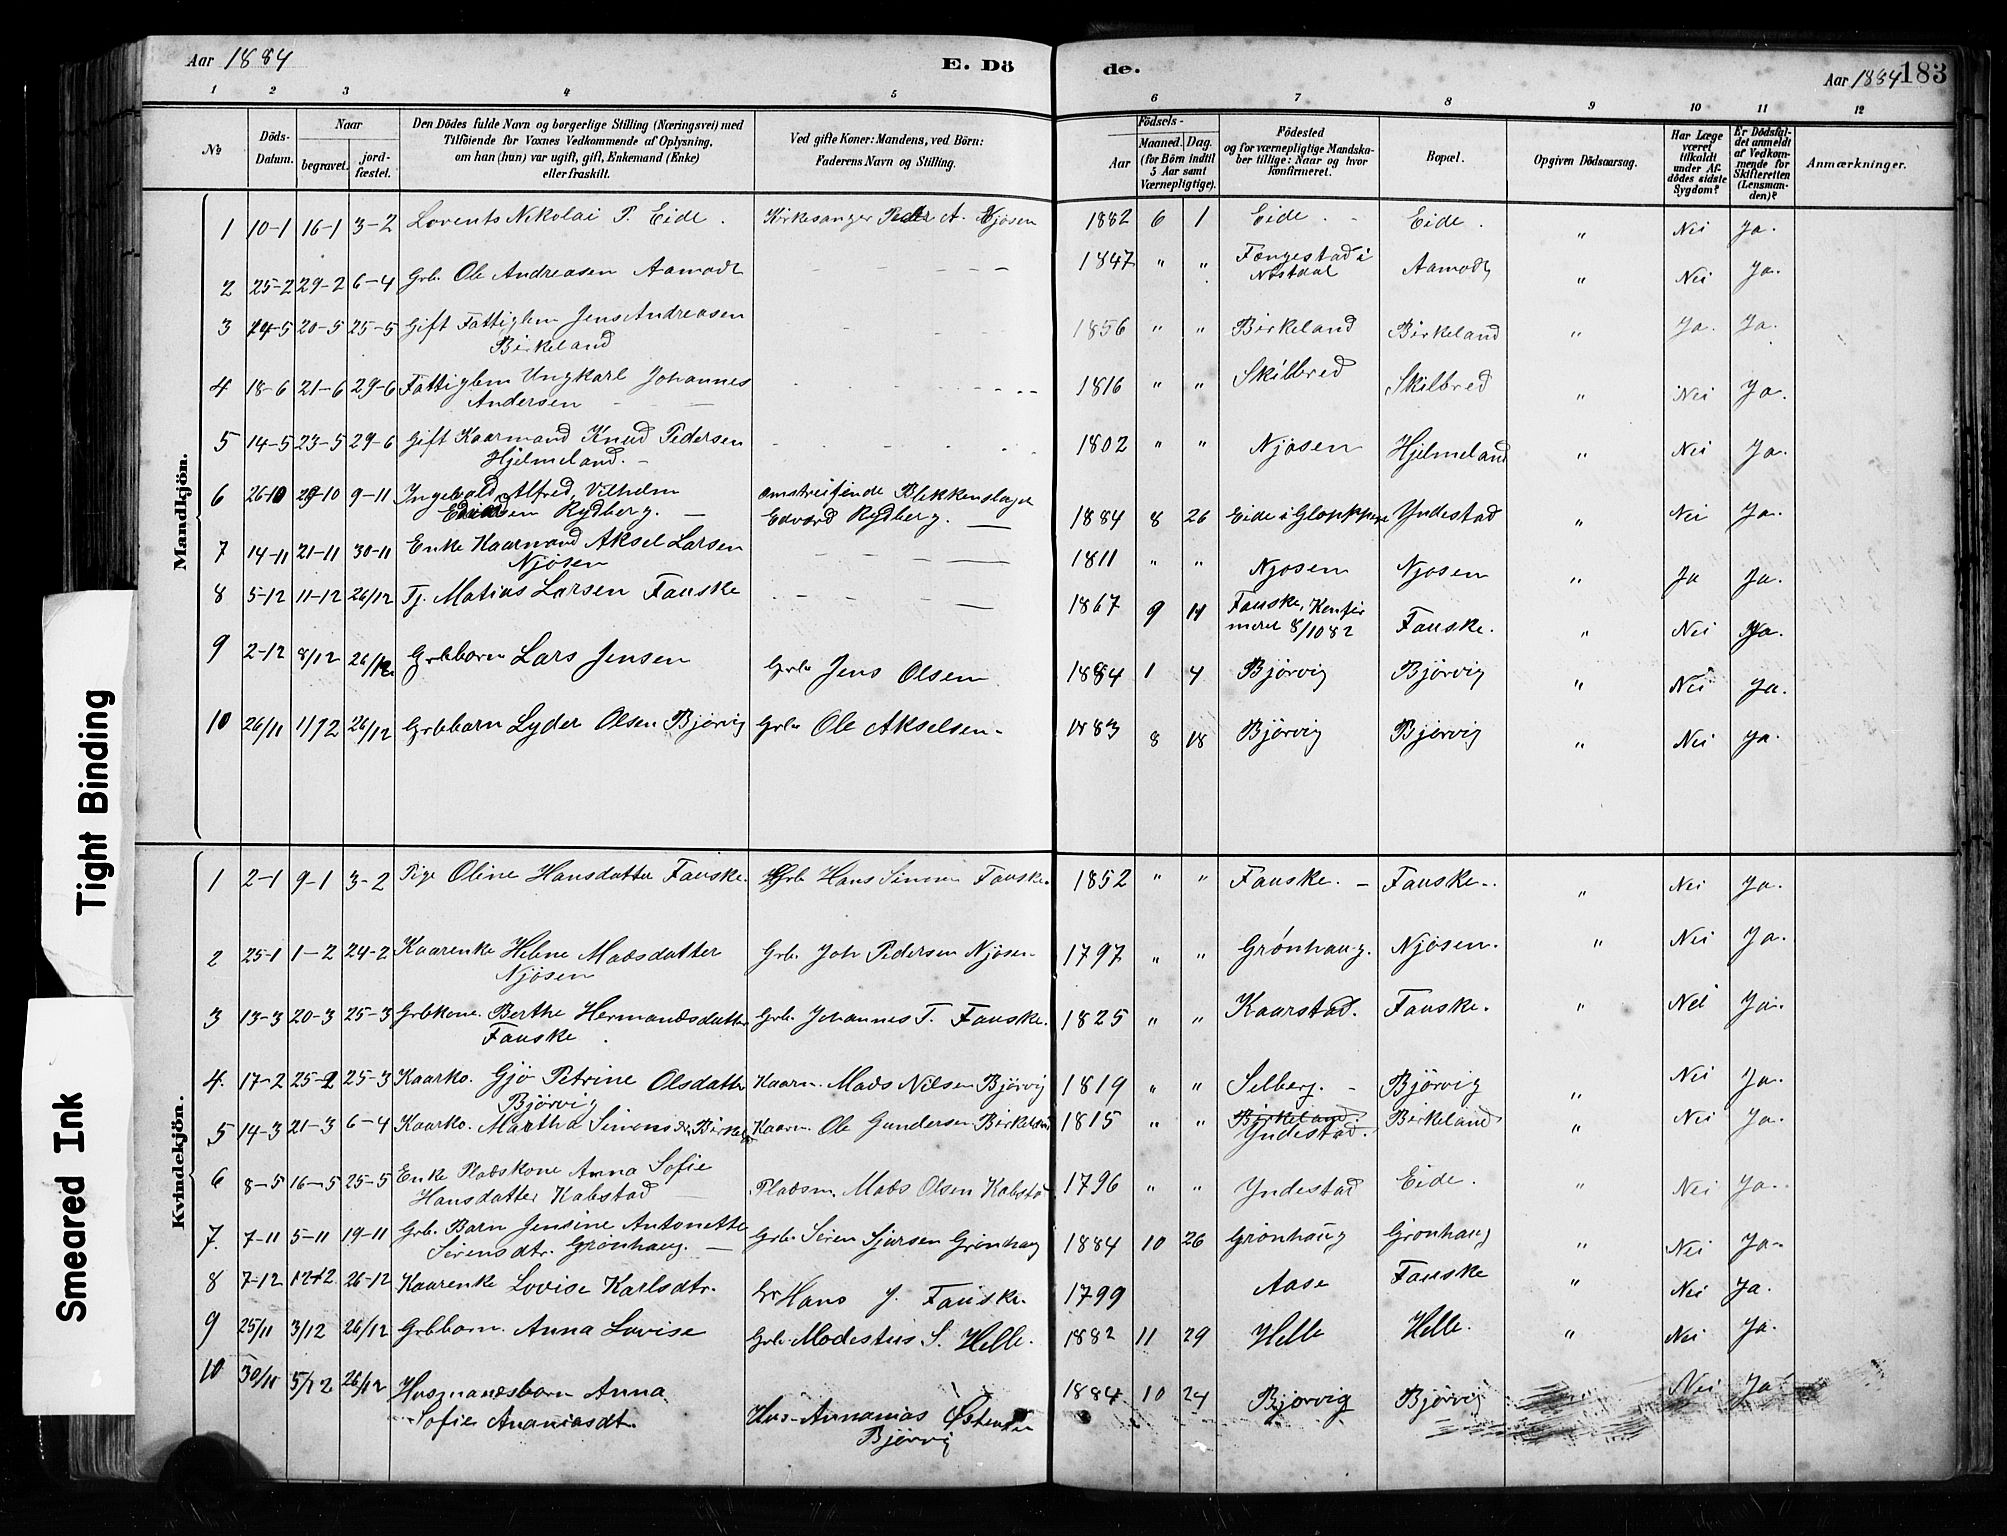 Aar 1884 E. Dö de. Aar 1884 183
1 2 3 4 5 6 7 8 9 10 11 12
No. Döds-Datum. Naar begravet. jord-fæstet. Den Dödes fulde Navn og borgerlige Stilling (Næringsvei) med Tilföiende for Voxnes Vedkommende af Oplysning, om han (hun) var ugift, gift, Enkemand (Enke) eller fraskilt. Ved gifte Koner: Mandens, ved Börn: Faderens Navn og Stilling. Födsels- Aar Maaned. Dag. (for Börn indtil 5 Aar samt Værnepligtige). Födested og for værnepligtige Mandska-ber tillige: Naar og hvor konfirmeret. Bopæl. Opgiven Dödsaarsag. Har Læge været tilkaldt under Af-dödes sidste Sygdom? Er Dödsfal-det anmeldt af Vedkom-mende for Skifteretten (Lensman-den)? Anmærkninger.
Mandkjön.
1 10-1 16-1 3-2 Lorents Nikolai P. Eide. Kirkesanger Peder A. Njøsen 1882 6 1 Eide. - Eide. " Nei Ja.
2 25-2 29-2 6-4 Grb. Ole Andreasen Aamodt - - - - - 1847 " " Fængestad i Nøstdal Aamodt " Nei Ja.
3 14-5 20-5 25-5 Gift Fattiglem Jens Andreasen Birkeland 1856 " " Birkeland Birkeland " Ja. Ja.
4 18-6 21-6 29-6 Fattiglem Ungkarl Johannes Andersen 1816 " " Skilbred Skilbred " Nei Ja.
5 14-5 23-5 29-6 Gift Kaarmand Knud Pedersen Hjelmeland. - 1802 " " Njøsen Hjelmeland " Nei Ja.
6 26-10 29-10 9-11 Ingevald, Alfred, Vilhelm Rydberg. - omstreifende Blikkenslager Edvard Rydberg. - 1884 8 26 Eide i Gloppen Yndestad " Nei Ja.
7 14-11 21-11 30-11 Enke Kaarmand Aksel Larsen Njøsen 1811 " " Njøsen Njøsen " Ja Ja.
8 5-12 11-12 26/12 Tj. Matias Larsen Fauske 1867 9 11 Fauske, Konfir meret 8/10 82 Fauske. " Nei Ja.
9 2-12 8/12 26/12 Grbbarn Lars Jensen Grbr Jens Olsen 1884 1 4 Bjørvig Bjørvig " Nei Ja.
10 26/11 1/12 26/12 Grbbarn Lyder Olsen Bjørvig Grbr Ole Akselsen - 1883 8 18 Bjørvig Bjørvig " Nei Ja.
Kvindekjön.
1 2-1 9-1 3-2 Pige Oline Hansdatter Fauske. Grb. Hans Simon Fauske. 1852 " " Fauske. - Fauske. " Nei Ja.
2 25-1 1-2 24-2 Kaarenke Helene Madsdatter Njøsen Grb. Joh Pedersen Njøsen 1797 " " Grønhaug. Njøsen. " Nei Ja.
3 13-3 20-3 25-3 Grbkone. Berthe Hermandsdatter Fauske. Grb. Johannes T. Fauske. 1825 " " Kaarstad. Fauske. " Nei Ja.
4. 17-2 25-2 25-3 Kaarko. Gjø Petrine Olsdatter Bjørvig Kaarm. Mads Nilsen Bjørvig 1819 " " Selberg. - Bjørvig " Nei Ja.
5 14-3 21-3 6-4 Kaarko. Martha Simonsdr. Birkeland Kaarm. Ole Gundersen Birkeland 1815 " " Birkeland. Yndestad. Birkeland " Nei Ja.
6 8-5 16-5 25-5 Enke Pladskone Anna Sofie Hansdatter Kabstad Pladsm. Mads Olsen Kabstad 1796 " " Yndestad Eide. " Nei Ja.
7. 7-11 5-11 19-11 Grb. Barn Jensine Antonette Sørensdtr. Grønhaug. - Grb. Søren Sjursen Grønhaug 1884 10 26 Grønhaug Grønhaug " Nei Ja.
8 7-12 12-12 26-12 Kaarenke Lovise Karlsdtr. Gr Hans J. Fauske. 1799 Aase Fauske " Nei Ja.
9 25/11 3/12 26/12 Grbbarn. Anna Lovise Grb. Modestus S. Helle. 1882 11 29 Helle Helle. " Nei Ja.
10 30/11 5/12 26/12 Husmandsbarn Anna Sofie Ananiasdt. Hus- Annanias Østensen Bjørvig 1884 10 24 Bjørvig Bjørvig Nei Ja
Tight Binding
Smeared Ink